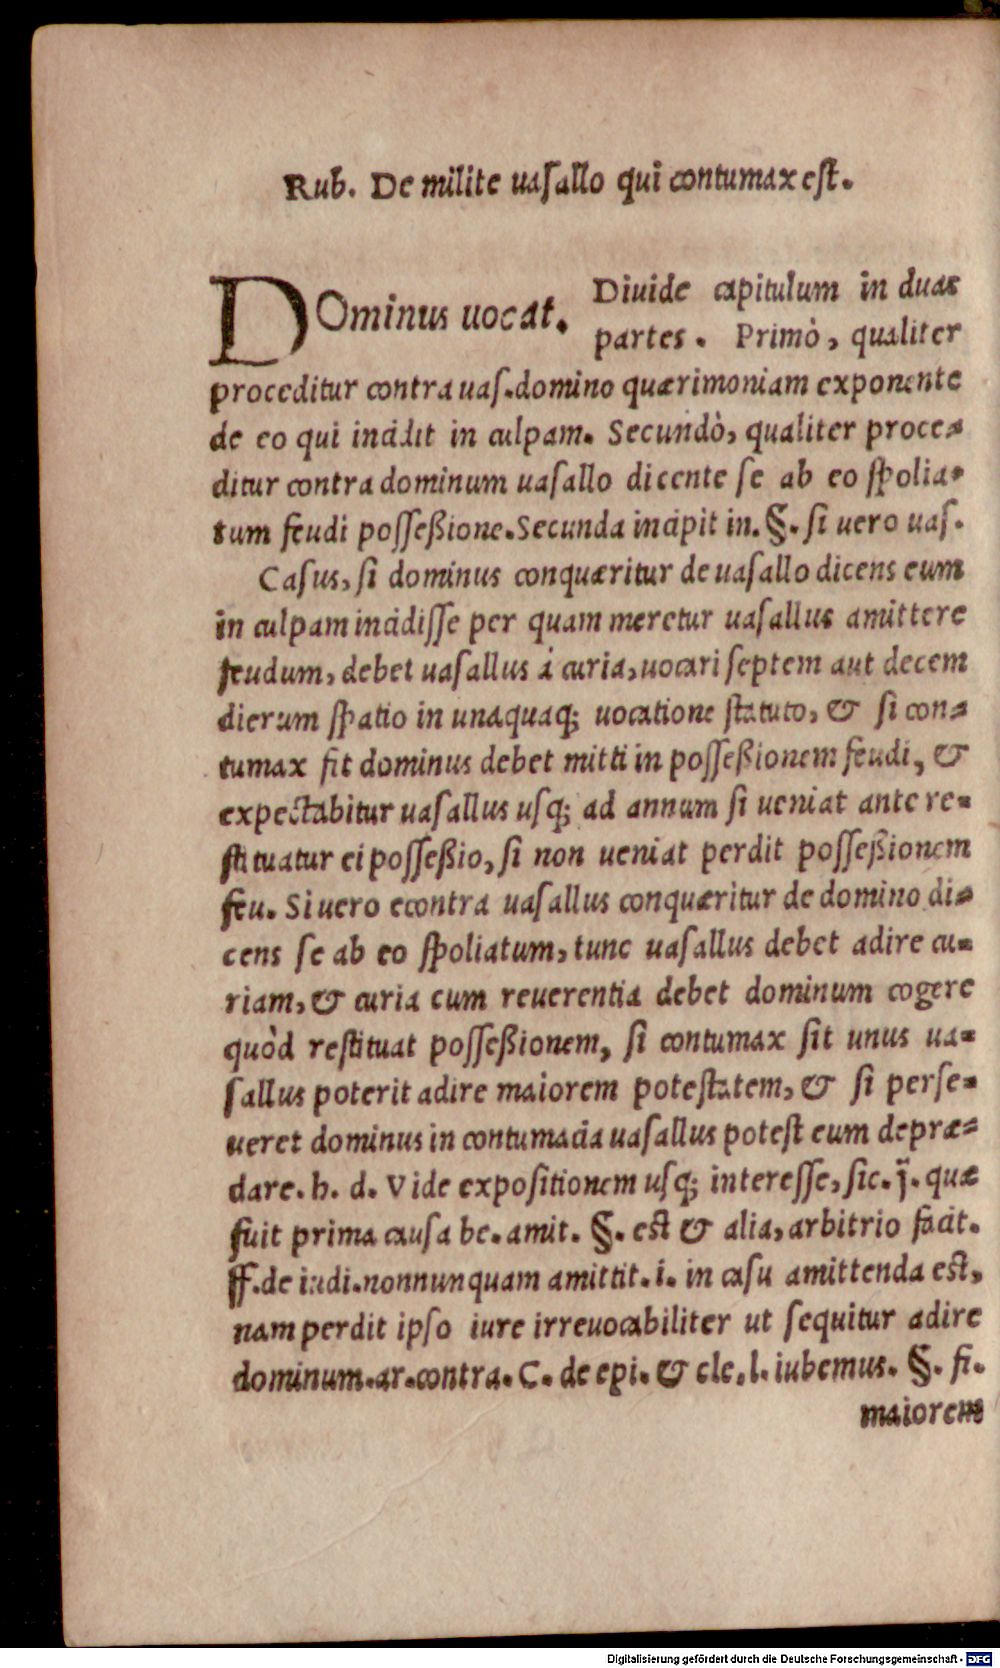 Rub. De milite uaſallo qui contumax eſt.
DOminus uocat. Diuide capitulum in duas
partes. Primò, qualiter
proceditur contra uaſ.domino quærimoniam exponente
de eo qui incidit in culpam. Secundò, qualiter proce-
ditur contra dominum uaſallo dicente ſe ab eo ſpolia-
tum feudi poſſeßione.Secunda incipit in.§. ſi uero uaſ.
Caſus, ſi dominus conquæritur de uaſallo dicens eum
in culpam incidiſſe per quam meretur uaſallus amittere
feudum, debet uaſallus à curia,uocari ſeptem aut decem
dierum ſpatio in unaquaq; uocatione ſtatuto, & ſi con-
tumax fit dominus debet mitti in poſſeßionem feudi, &
expectabitur uaſallus uſq; ad annum ſi ueniat ante re-
ſtituatur ei poſſeßio, ſi non ueniat perdit poſſeßionem
feu. Si uero econtra uaſallus conquæritur de domino di-
cens ſe ab eo ſpoliatum, tunc uaſallus debet adire cu-
riam, & curia cum reuerentia debet dominum cogere
quòd reſtituat poſſeßionem, ſi contumax ſit unus ua-
ſallus poterit adire maiorem poteſtatem, & ſi perſe-
ueret dominus in contumacia uaſallus poteſt eum depræ-
dare. h. d. Vide expoſitionem uſq; intereſſe, ſic. j. quæ
fuit prima cauſa be. amit. §. est & alia, arbitrio facit.
ff.de iudi.nonnunquam amittit.i. in caſu amittenda est,
nam perdit ipſo iure irreuocabiliter ut ſequitur adire
dominum.ar.contra. C. de epi. & cle. l. iubemus. §. fi.
maiorem
Digitalisierung gefördert durch die Deutsche Forschungsgemeinschaft - DFG